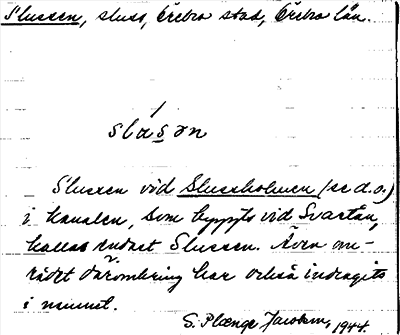 Slussen, sluss, Örebro stad, Örebro län.
slusən
Slussen vid Slussholmen (se d.o.)
i kanalen, som byggts vid Svartån,
kallas endast Slussen. Även om-
rådet däromkring har också indragits
i namnet.
S. Plænge Jacobson, 1944.